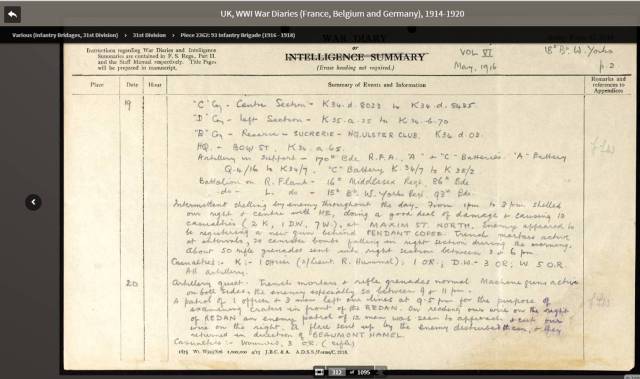 UK, WWI War Diaries (France, Belgium and Germany), 1914-1920
Various (Infantry Bridages, 31st Division) > 31st Division > Piece 2362: 93 Infantry Brigade (1916 - 1918)
WAR DIARY
or
INTELLIGENCE SUMMARY
(Erase heading not required.)
Instructions regarding War Diaries and Intelligence
Summaries are contained in F. S. Regs., Part II.
and the Staff Manual respectively. Title Pages
will be prepared in manuscript.
VOL VI
May, 1916
18th Bn. W. Yorks
p.2
Place
Date
Hour
Summary of Events and Information
Remarks and
references to
Appendices
19
"C" Coy - Centre Section - K34.d. to K34.d.
"D" Coy - Left Section - K35.a. to K34.b.70
"B" Coy - Reserve - SUCRERIE - HQ. ULSTER CLUB. K34.d.03.
HQ. - BOW ST. K34.a.65.
Artillery in Support - 170th Bde R.F.A. "A" + "C" Batteries. "A" Battery
Q.4/16 to K34/7. "C" Battery K.34/7 to K35/2
Battalion on R. Flank - 16th Middlesex Regt. 86th Bde
-do- L. do - 15th Bn. W. Yorks Regt. 93rd Bde.
Intermittent shelling by enemy throughout the day. From 1pm to 3 pm shelled
our right + centre with HE, doing a good deal of damage + causing 10
casualties (2 K, 1 DW, 7W), at MAXIM ST. NORTH. Enemy appeared to
be registering a new gun behind PENDANT COPSE. Trench mortars active
at intervals, 20 canister bombs falling in right section during the morning.
About 50 rifle grenades sent into right section between 3 + 6 pm
Casualties :- K :- 1 Officer (2/Lieut R.); 1 OR; D.W - 3 OR; W 5 O.R.
All artillery.
20
Artillery quiet. Trench mortars + rifle grenades normal. Machine guns active
on both sides, the enemy especially so between 9 + 11 pm.
A patrol of 1 officer + 3 men left our lines at 9.5 pm for the purpose of
examining craters in front of the REDAN. On reaching our wire on the right
of REDAN an enemy patrol of 12 men was seen to approach + cut our
wire on the right. A flare sent up by the enemy disturbed them, + they
returned in direction of BEAUMONT HAMEL.
Casualties :- Wounded, 3 OR. (rifle)
J.B.C. & A. A.D.S.S./Forms/C. 2118.
312 of 1095